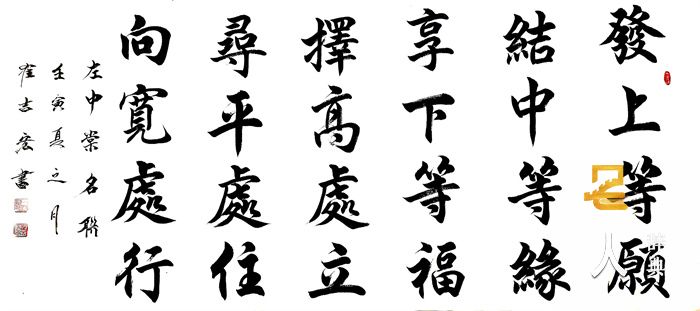 發上等願
結中等緣
享下等福
擇高處立
尋平處住
向寬處行
左中棠名聯
壬寅夏之月
崔吉書
人
辞典